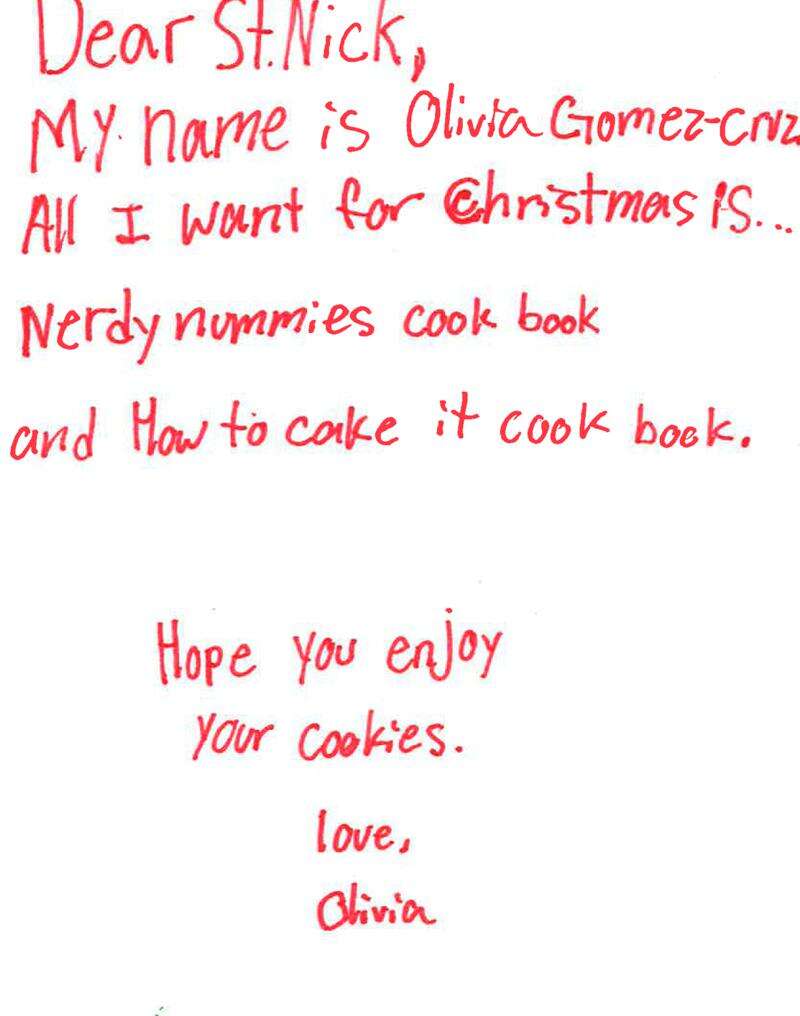 Dear St. Nick,
My name is Olivia Gomez-Cruz
All I want for Christmas is...
Nerdy nummies cook book
and How to cake it cook book.
Hope you enjoy
your cookies.
love,
Olivia